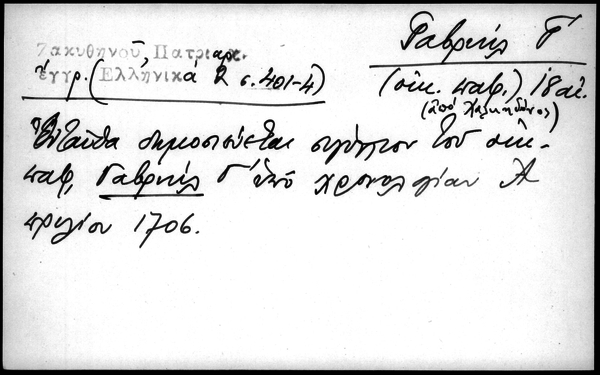 Ζακυθηνοῦ, Πατριαρχ.
ἔγγρ. (Ἑλληνικά 2 σ. 401-4)
Γαβριήλ Γ'
(οἰκ. πατρ.) 18 αἰ.
(ἀπό Χαλκηδόνος)
Ἐνταῦθα δημοσιεύεται σιγίλλιον τοῦ οἰκ.
πατρ. Γαβριήλ Γ' ὑπό χρονολογίαν Ἀ
πριλίου 1706.